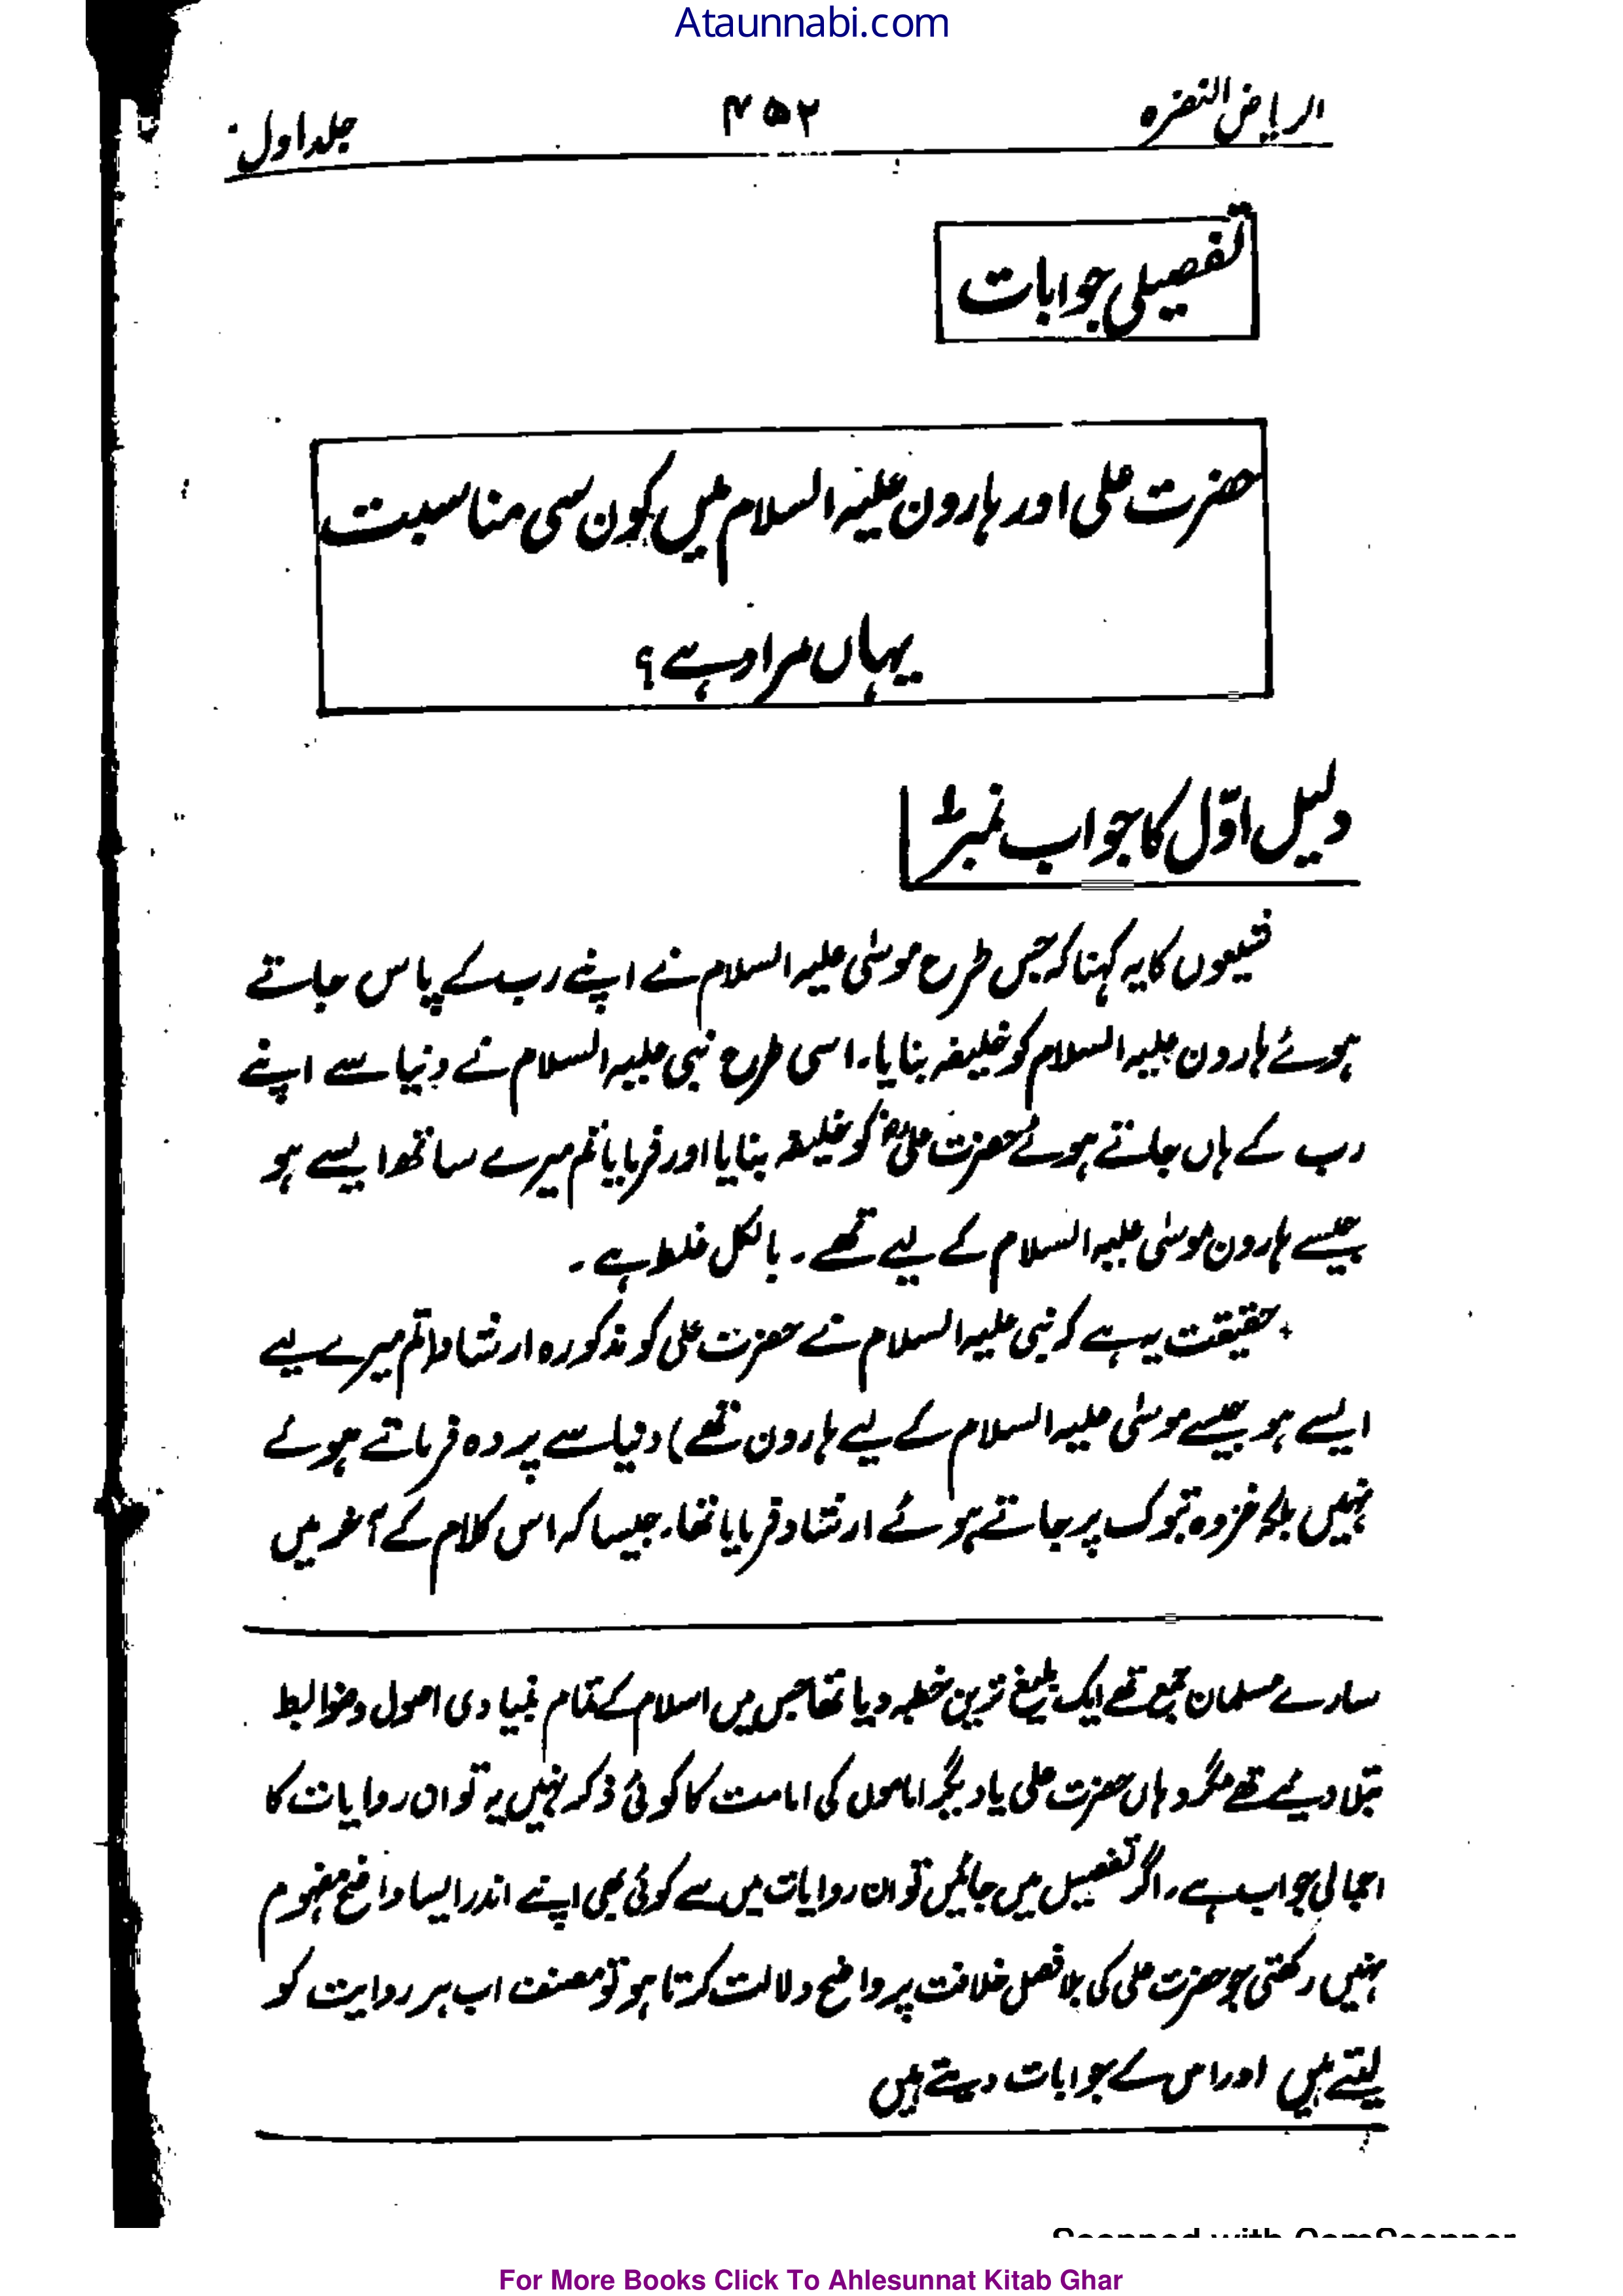 Ataunnabi.com
الریاض النضرہ ۴۵۲ جلد اول
تفصیلی جوابات
حضرت علی اور ہارون علیہ السلام میں کون سی مناسبت
یہاں مراد ہے؟
دلیل اوّل کا جواب نمبر۱
شیعوں کا یہ کہنا کہ جس طرح موسٰی علیہ السلام نے اپنے رب کے پاس جاتے
ہوئے ہارون علیہ السلام کو خلیفہ بنایا۔ اسی طرح نبی علیہ السلام نے دنیا سے اپنے
رب کے ہاں جاتے ہوئے حضرت علیؓ کو خلیفہ بنایا اور فرمایا تم میرے ساتھ ایسے ہو
جیسے ہارون موسٰی علیہ السلام کے لیے تھے۔ بالکل غلط ہے۔
حقیقت یہ ہے کہ نبی علیہ السلام نے حضرت علی کو مذکورہ ارشاد (تم میرے لیے
ایسے ہو جیسے موسٰی علیہ السلام کے لیے ہارون تھے) دنیا سے پردہ فرماتے ہوئے
نہیں بلکہ غزوہ تبوک پر جاتے ہوئے ارشاد فرمایا تھا۔ جیسا کہ اس کلام کے آخر میں
سارے مسلمان جمع تھے ایک بلیغ ترین خطبہ دیا تھا جس میں اسلام کے تمام بنیادی اصول و ضوابط
بتلا دیے تھے مگر وہاں حضرت علی یا دیگر اماموں کی امامت کا کوئی ذکر نہیں یہ تو ان روایات کا
اجمالی جواب ہے۔ اگر تفصیل میں جائیں تو ان روایات میں سے کوئی بھی اپنے اندر ایسا واضح مفہوم
نہیں رکھتی جو حضرت علی کی بلا فصل خلافت پر واضح دلالت کرتا ہو تو مصنف اب ہر روایت کو
لیتے ہیں اور اس کے جوابات دیتے ہیں
Scanned with CamScanner
For More Books Click To Ahlesunnat Kitab Ghar